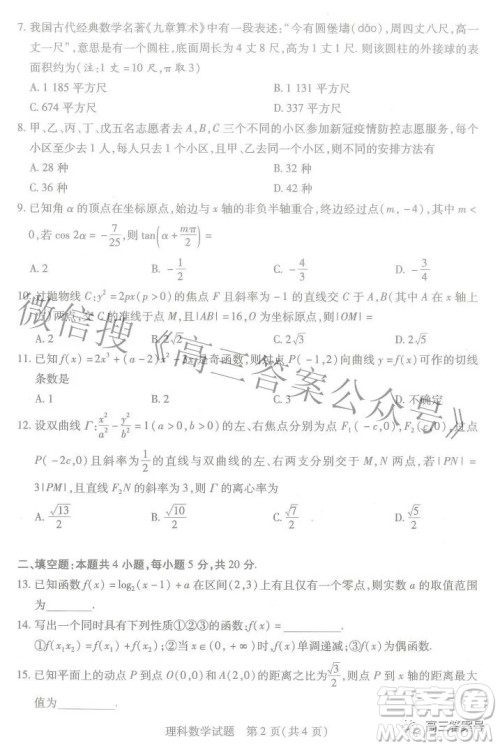 7. 我国古代经典数学名著《九章算术》中有一段表述:“今有圆堡壔(dǎo),周四丈八尺,高一
丈一尺”,意思是有一个圆柱,底面周长为4丈8尺,高为1丈1尺.则该圆柱的外接球的表
面积约为(注:1丈=10尺,π取3)
A. 1 185 平方尺 B. 1 131 平方尺
C. 674 平方尺 D. 337 平方尺
8. 甲、乙、丙、丁、戊五名志愿者去A,B,C三个不同的小区参加新冠疫情防控志愿服务,每个
小区至少去1人,每人只去1个小区,且甲、乙去同一个小区,则不同的安排方法有
A. 28 种 B. 32 种
C. 36 种 D. 42 种
9. 已知角α的顶点在坐标原点,始边与x轴的非负半轴重合,终边经过点(m,-4),其中m<
0,若cos 2α=-7/25,则tan(α+mπ/2)=
A. 2 B. -1/2 C. -4/3 D. -3/4
10. 过抛物线C:y²=2px(p>0)的焦点F且斜率为-1的直线交C于A,B两点,其中A在x轴上
方,且交C的准线于点M,且|AB|=16,则|OM|=
A. 2 B. 2√2 C. √5 D. 2√5
11. 已知f(x)=2x³+(a-2)x²-3x是奇函数,则过点P(-1,2)向曲线y=f(x)可作的切线
条数是
A. 1 B. 2 C. 3 D. 不确定
12. 设双曲线Γ:x²/a²-y²/b²=1(a>0,b>0)的左、右焦点分别为点F₁(-c,0),F₂(c,0),过点
P(-2c,0)且斜率为1/2的直线与双曲线的左、右两支分别交于M,N两点,若|PN|=
3|PM|,且直线F₂N的斜率为3,则Γ的离心率为
A. √13/2 B. √10/2 C. √7/2 D. √5/2
二、填空题:本题共4小题,每小题5分,共20分.
13. 已知函数f(x)=log₂(x-1)+a在区间(2,3)上有且仅有一个零点,则实数a的取值范围
为________.
14. 写出一个同时具有下列性质①②③的函数f(x)=________.
①f(x₁x₂)=f(x₁)f(x₂);②当x∈(0,+∞)时,f(x)单调递减;③f(x)为偶函数.
15. 已知平面上的动点P到点O(0,0)和A(2,0)的距离之比为√3/2,则点P到x轴的距离最大
值为________.
理科数学试题 第2页(共4页)
微信搜《高三答案公众号》
答案圈
高三答案号